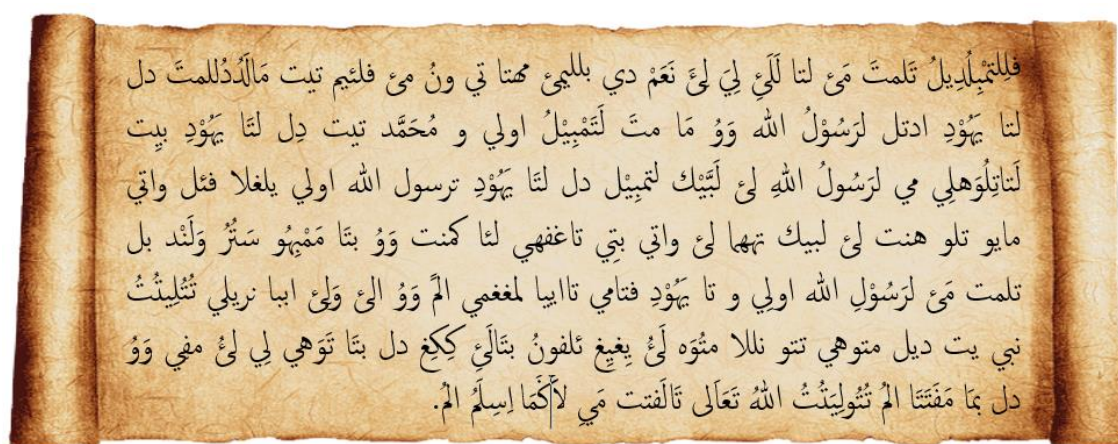 فلِلتمْبِلُدِيلُ تَلمتَ مَئ لتا لَلَئِ لِيَ لِئَ نَعَمْ دي بلليمئ مهتا تي ونُ مئ فلئيم تيت مَالَدُدُللمتَ دل
لتا يَهُوْدِ ادتل لرَسُوْلُ الله وَوُ مَا متَ لَتَمْبِيْلُ اولي و مُحَمَّد تيت دِل لتَا يَهُوْدِ بيِت
لَتاتِلُوَهلِي مي لرَسُولُ اللهِ لئ لَبَّيْك لتمبِيْل دل لتَا يَهُوْدِ ترسول الله اولي يلغلا فئل واتي
مايو تلو هنت لئ لبيك تهها لئ واتي بتِي تاغفهي لئا كمنت وَوُ بتَا مَمْبِهُو سَتُرُ وَلَنْد بل
تلمت مَئ لرَسُوْلِ الله اولي و تا يَهُوْدِ فتامي تاابيا لمغغمي المَّ وَوُ الئ وَلِئ اببا نريلي تُتُلِيتُتُ
نبي يت ديل متوهي تتو نللا متُوَه لَئُ يِغيِغ ئلفونُ بتَالَئِ كِكِغ دل بتَا تَوَهي لِي لئُ مفي وَوُ
دل بمَا مَفَتَتَا المُ تُتُولِيَتُتُ اللهُ تَعَالى تَالَفتت مَيِ لأكَمَا اِسِلَمُ المُ.